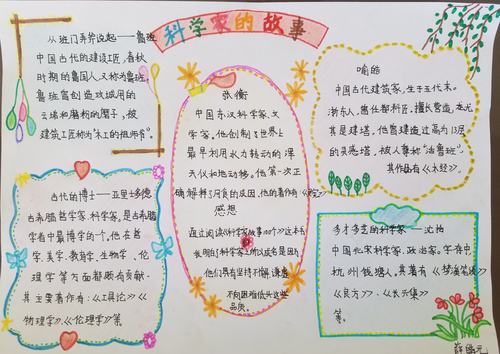 科学家的故事
从班门弄斧说起——鲁班
中国古代的建设工匠,春秋
时期的鲁国人,又称为鲁班,
鲁班曾创造攻城用的
云梯和磨粉的磨,被
建筑工匠称为“木工的祖师爷”。
古代的博士——亚里士多德
古希腊哲学家、科学家,是古希腊
学者中最博学的一个。他在哲
学、美学、教育学、生物学、伦
理学等方面都颇有贡献。
其主要著作有:《工具论》《
物理学》、《伦理学》等
张衡
中国东汉科学家、文
学家,他创制了世界上
最早利用水力转动的浑
天仪和地动仪。他第一次正
确解释了月食的成因,他的著作有《灵宪》
感想
通过阅读《科学家故事100个》这本书
我明白了科学家之所以成名是因为
他们具有坚持不懈、谦虚
不向困难低头这些
品质。
喻皓
中国古代建筑家,生于五代末。
浙东人,曾任都料匠,擅长营造,尤
其是建塔,他曾建造过高为13层
的灵感塔,被人尊称“活鲁班”。
其作品有《木经》。
多才多艺的科学家——沈括
中国北宋科学家、政治家。字存中
杭州钱塘人。其著有《梦溪笔谈》
《良方》、《长兴集》
等。